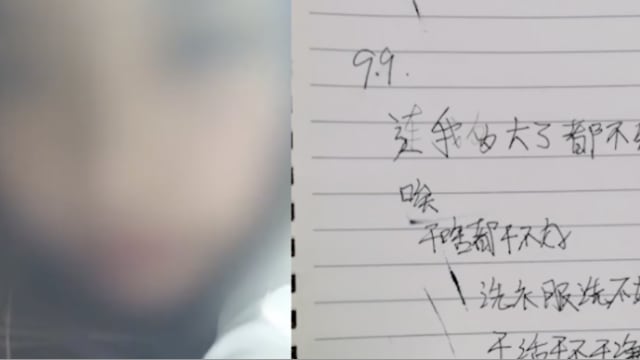 9.9.
连我 大了都不
唉
干啥都干不好
洗衣服洗不
干活干不干